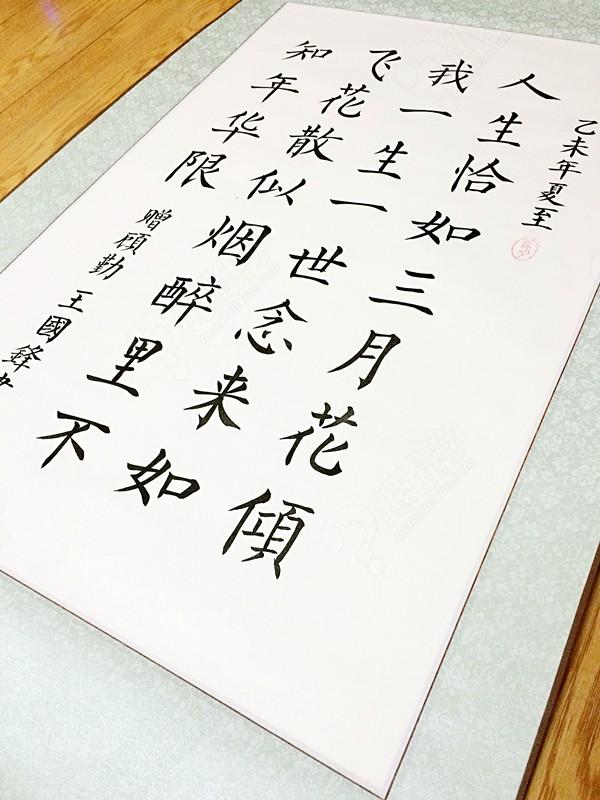 乙未年夏至
人生恰如三月花傾
我一生一世念来如
飞花散似烟醉里不
知年华限
赠 勤 王國鋒